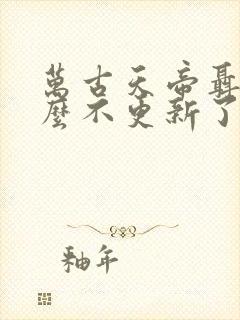 萬古天帝聶
麼不更新了
釉年